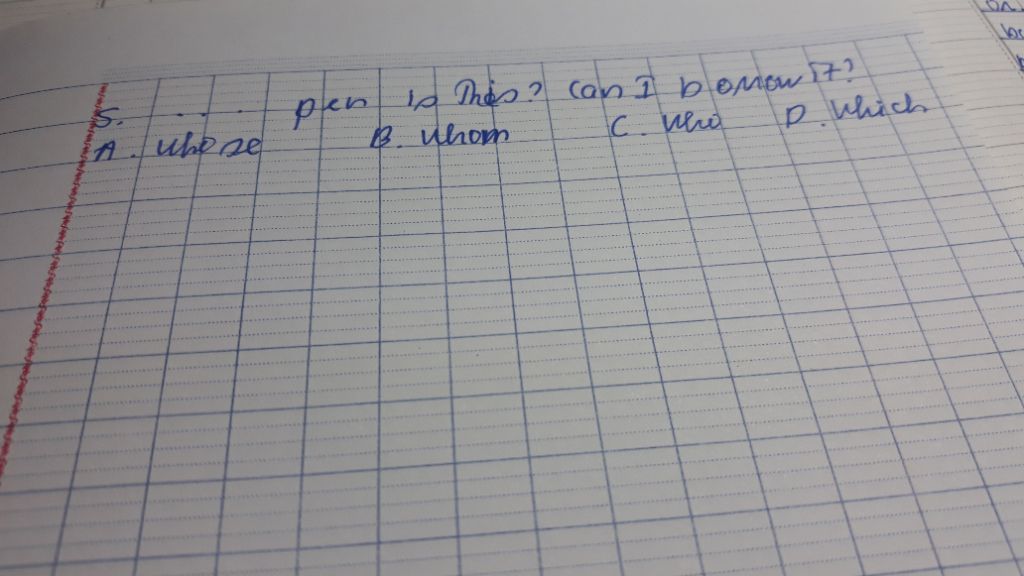 5. .... pen is this? Can I borrow it?
A. whose B. whom C. who D. which